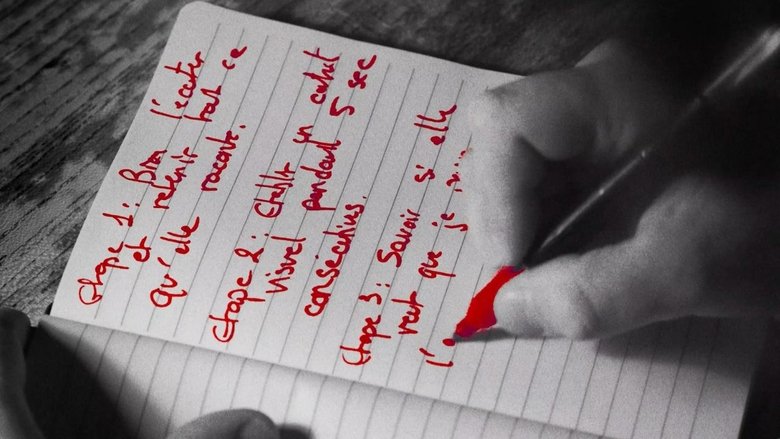 étape 1: Bien l'écouter
et retenir tout ce
qu'elle raconte.
étape 2: établir un contact
visuel pendant 5 sec
consécutives.
étape 3: Savoir si elle
veut que je